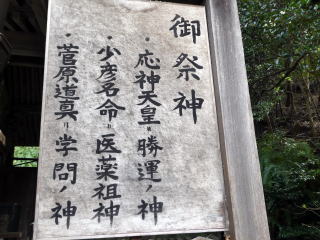 御祭神
・応神天皇は勝運ノ神
・少彦名命リ医薬祖神
・菅原道真リ学問ノ神